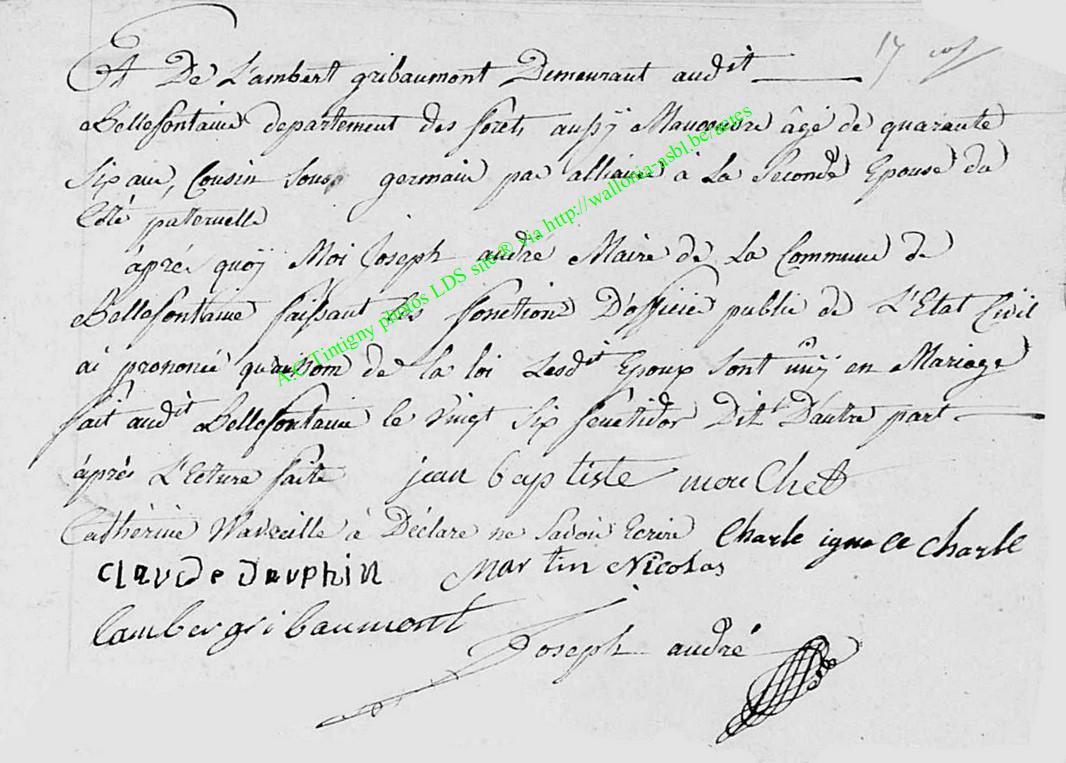 Et De L'ambert gribaumont Demeurant audit
Bellefontaine departement des forets aussÿ Manouvre âgé de quarante
Six ans, Cousin Sous germain par alliance à La Seconde Epouse du
Coté paternelle
áprés quoÿ Moi Joseph andré Maire de La Commune de
Bellefontaine faissant les fonctions D'officié public de L'Etat Civil
ai prononcé qu'au nom de la loi Lesdit Epoux sont unÿ en Mariage
fait audit Bellefontaine le vingt Six Dit D'autre part
áprés L'Ecture faite jean baptiste mouchet
Catherine Warveille à Déclare ne Savoir Ecrire Charle ignace Charle
Claude Dauphin Martin Nicolas
lamber gribaumont
Joseph andré
A.C. Tintigny photos LDS site® via http://wallonia-asbl.be/actes